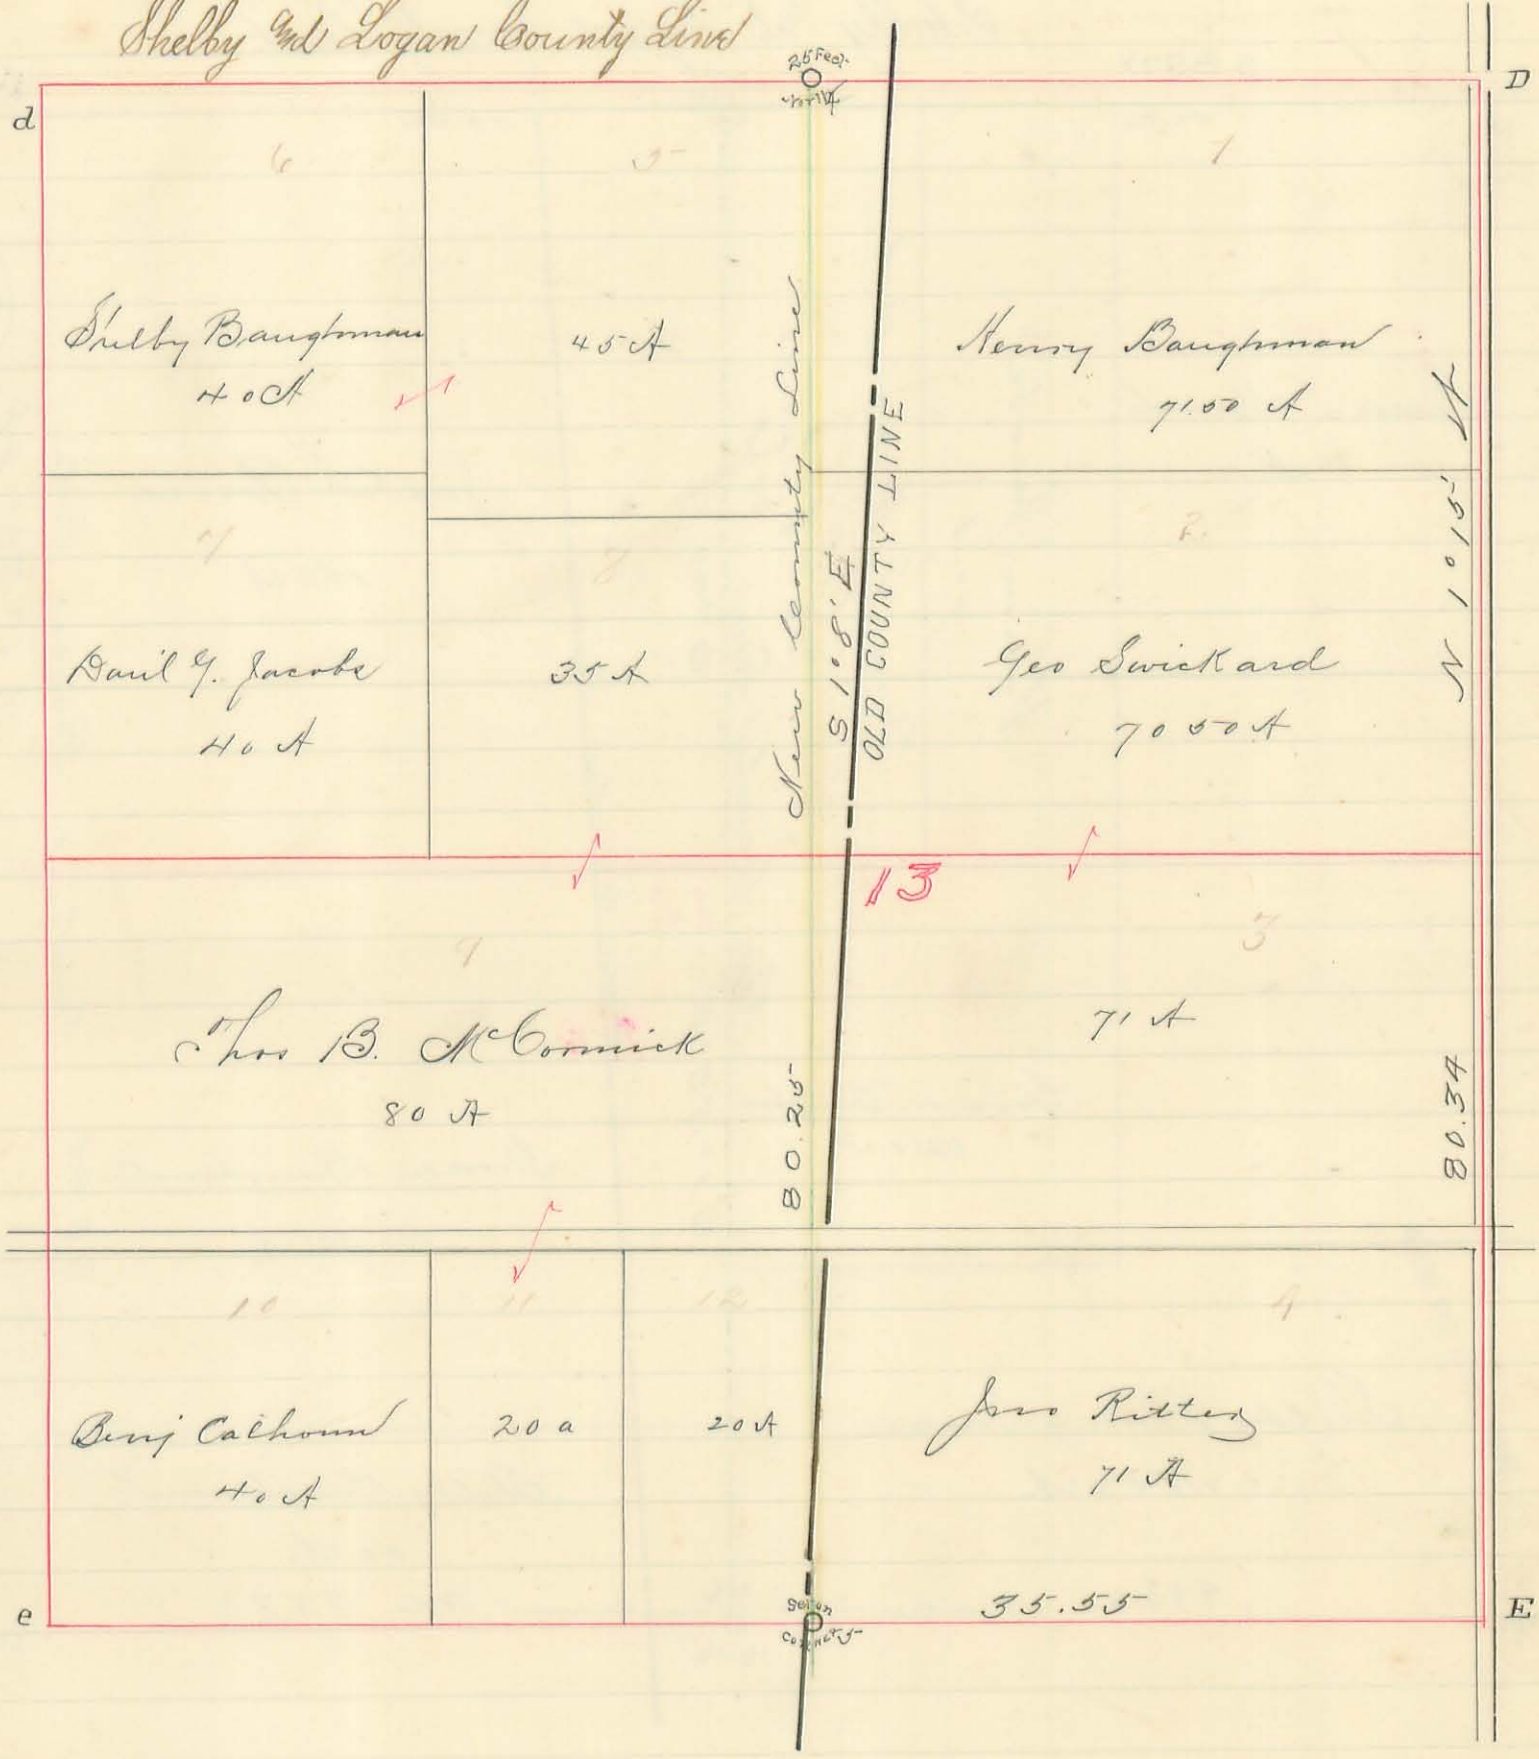 Shelby and Logan County Line
25 Feet
North
d
D
6
5
1
Shelby Baughman
40 A
45 A
Henry Baughman
71.50 A
N 1° 15' W
New County Line
S 1° 8' E
OLD COUNTY LINE
7
8
2
Danl Y. Jacobs
40 A
35 A
Geo Swickard
70 50 A
13
9
3
Thos B. McCormick
80 A
71 A
80.25
80.34
10
11
12
4
Benj Calhoun
40 A
20 a
20 A
Jno Ritter
71 A
35.55
e
E
Set on
Corners